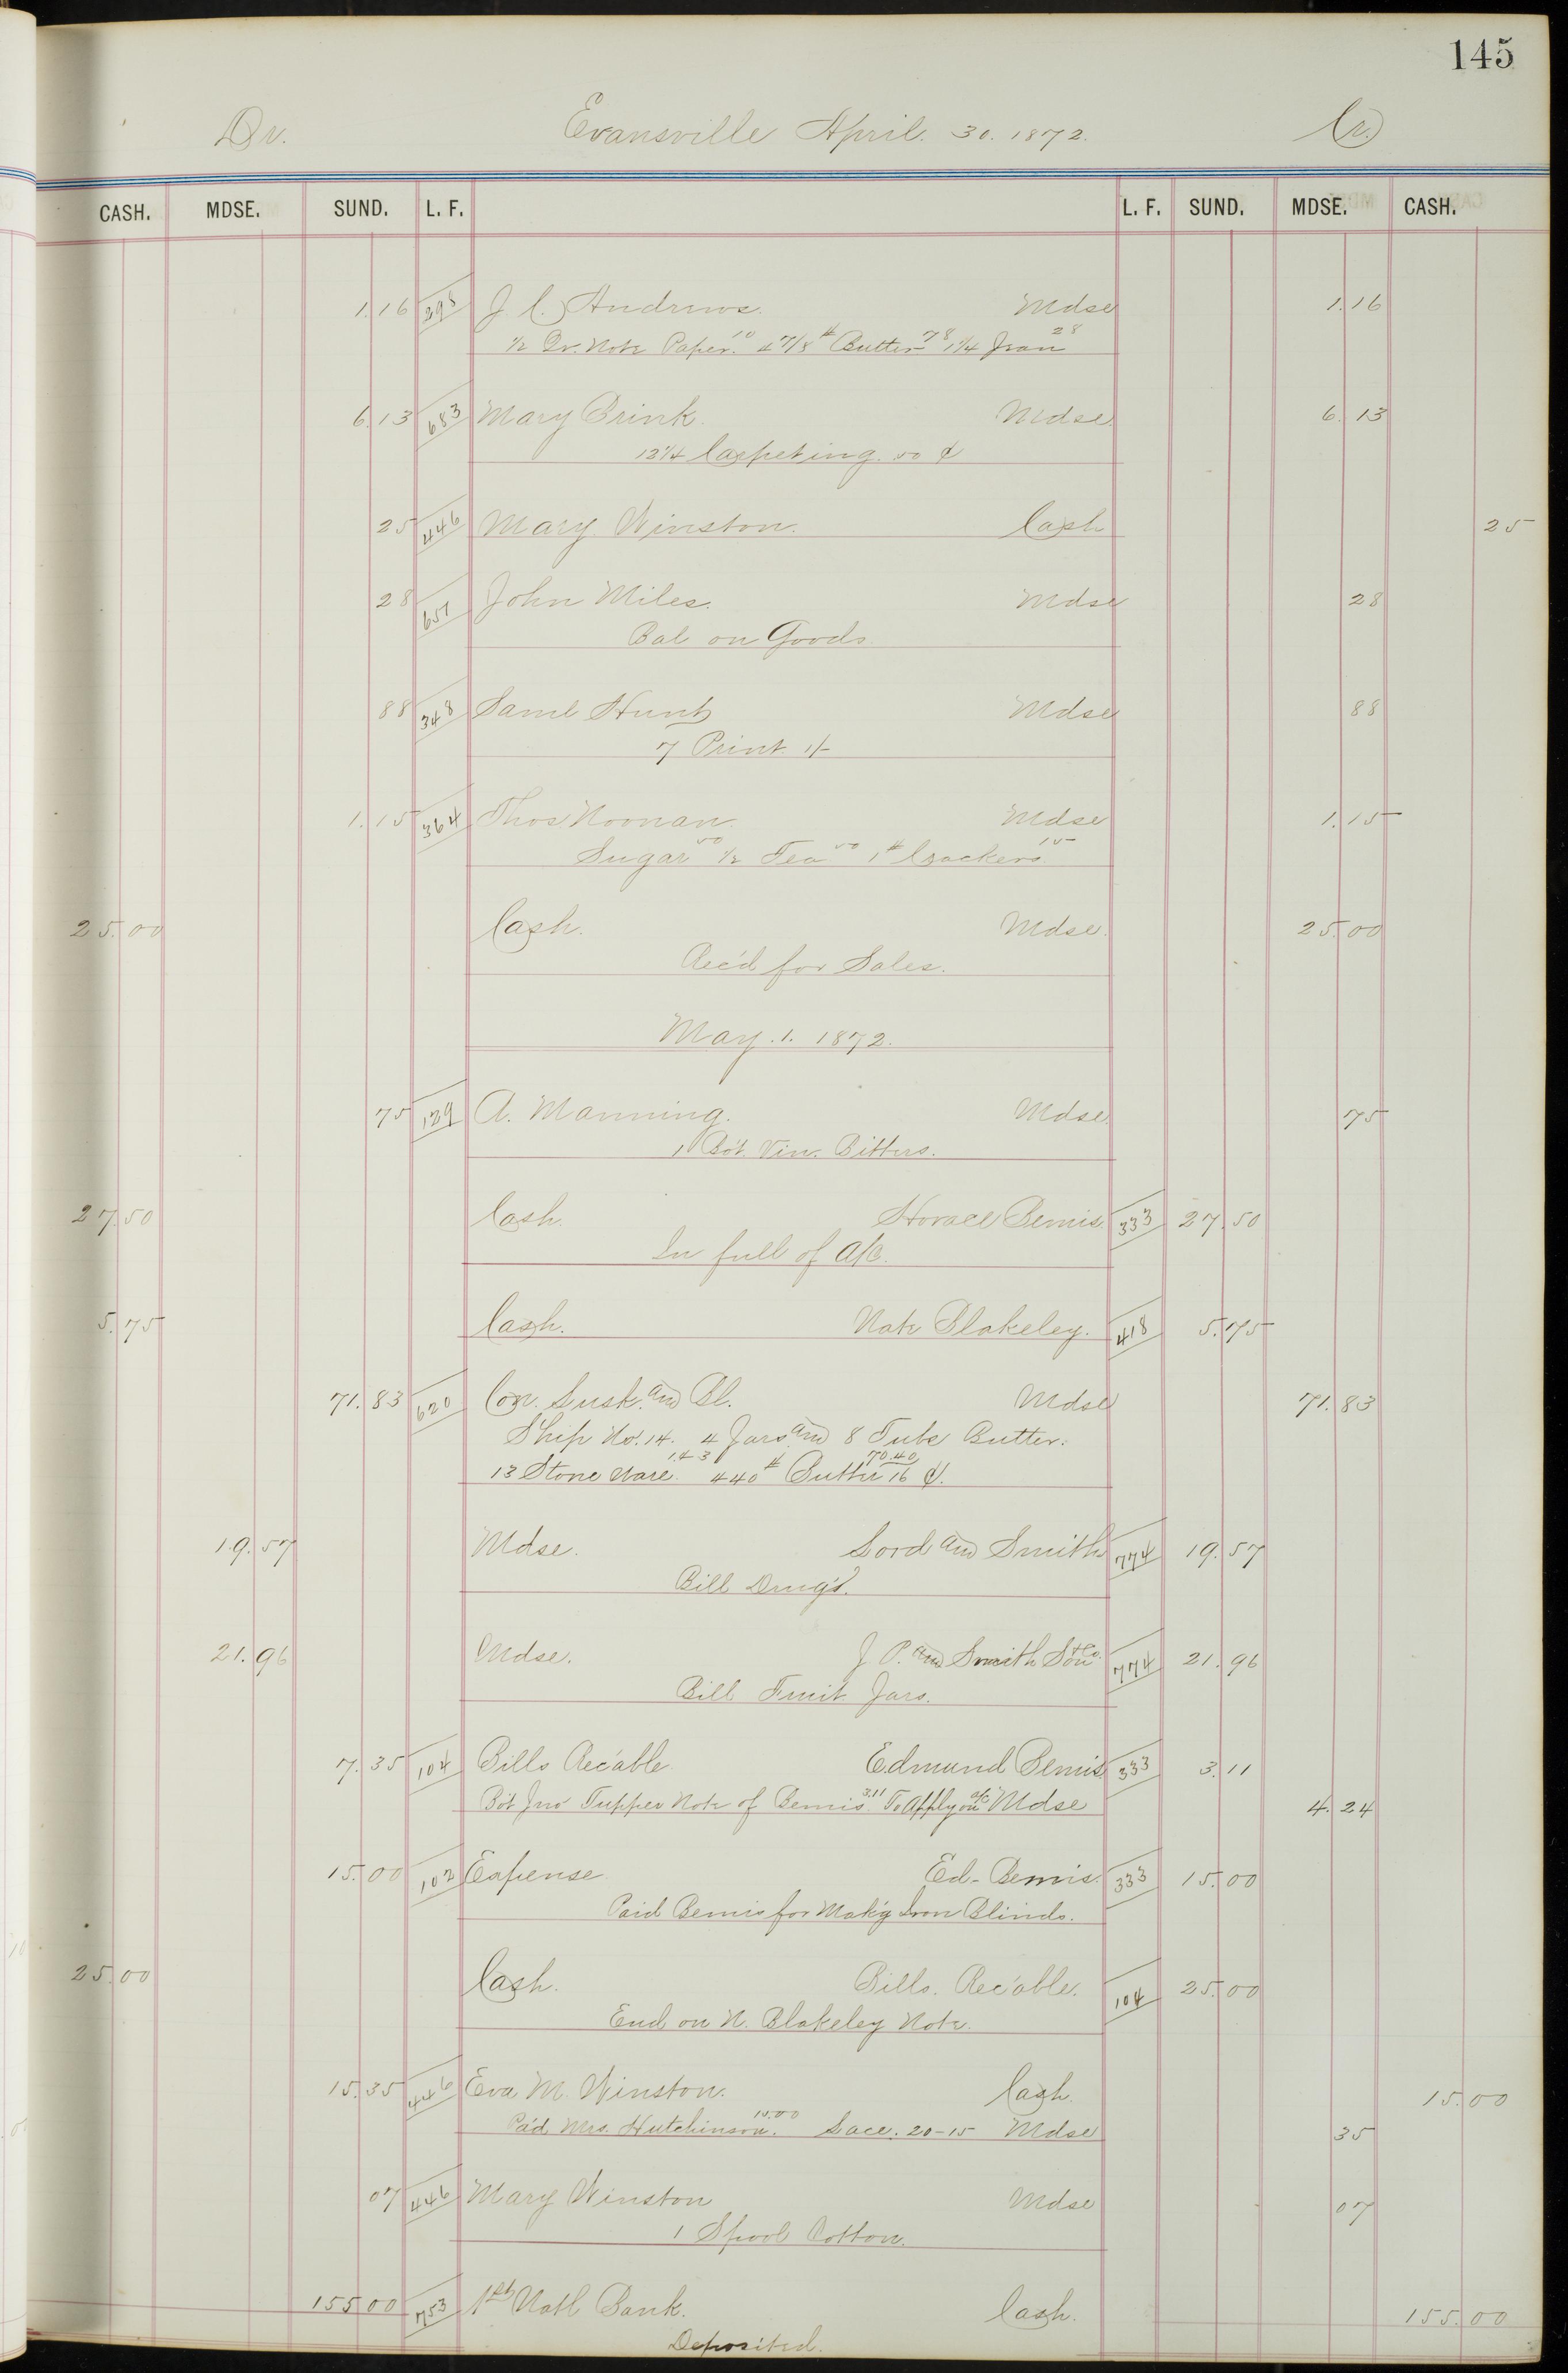 145
Dr. Evansville April. 30. 1872. Cr.
CASH. MDSE. SUND. L. F. L. F. SUND. MDSE. CASH.
1.16 298 J. C. Andrews. Mdse 1.16
1/2 Qr. Note Paper. 10 4 7/8 # Butter 78 1 1/4 Jean 28
6.13 683 Mary Brink. Mdse. 6.13
12 1/4 Carpeting. 50 ¢
25 446 Mary Winston. Cash 25
28 657 John Miles. Mdse 28
Bal on Goods
88 348 Saml Hunt Mdse 88
7 Print 1/-
1.15 364 Thos Noonan. Mdse 1.15
Sugar 50 1/2 Tea 50 1 # Crackers 15
25.00 Cash. Mdse. 25.00
Rec'd for Sales.
May. 1. 1872.
75 129 A. Manning. Mdse. 75
1 Bot. Vin. Bitters.
27.50 Cash. Horace Bemis. 333 27.50
In full of a/c.
5.75 Cash. Nate Blakeley. 418 5.75
71.83 620 Con. Lusk. and Bl. Mdse 71.83
Ship No. 14. 4 Jars and 8 Tubs Butter.
13 Stone Ware. 1.43 440 # Butter 70.40 16 ¢.
19.57 Mdse. Lord and Smith 774 19.57
Bill Drugs.
21.96 Mdse. J. P. and Smith Son & Co. 774 21.96
Bill Fruit Jars.
7.35 104 Bills Rec'able. Edmund Bemis. 333 3.11
Bot Jno Tupper Note of Bemis 3.11 To apply on a/c Mdse 4.24
15.00 102 Expense. Ed- Bemis. 333 15.00
Paid Bemis for Mak'g Iron Blinds.
25.00 Cash. Bills. Rec'able. 104 25.00
End on N. Blakeley Note.
15.35 446 Eva M. Winston. Cash. 15.00
Pa'd Mrs. Hutchinson. 15.00 Lace. 20-15 Mdse 35
07 446 Mary Winston Mdse 07
1 Spool Cotton.
155.00 753 1st Natl Bank. Cash. 155.00
Deposited.